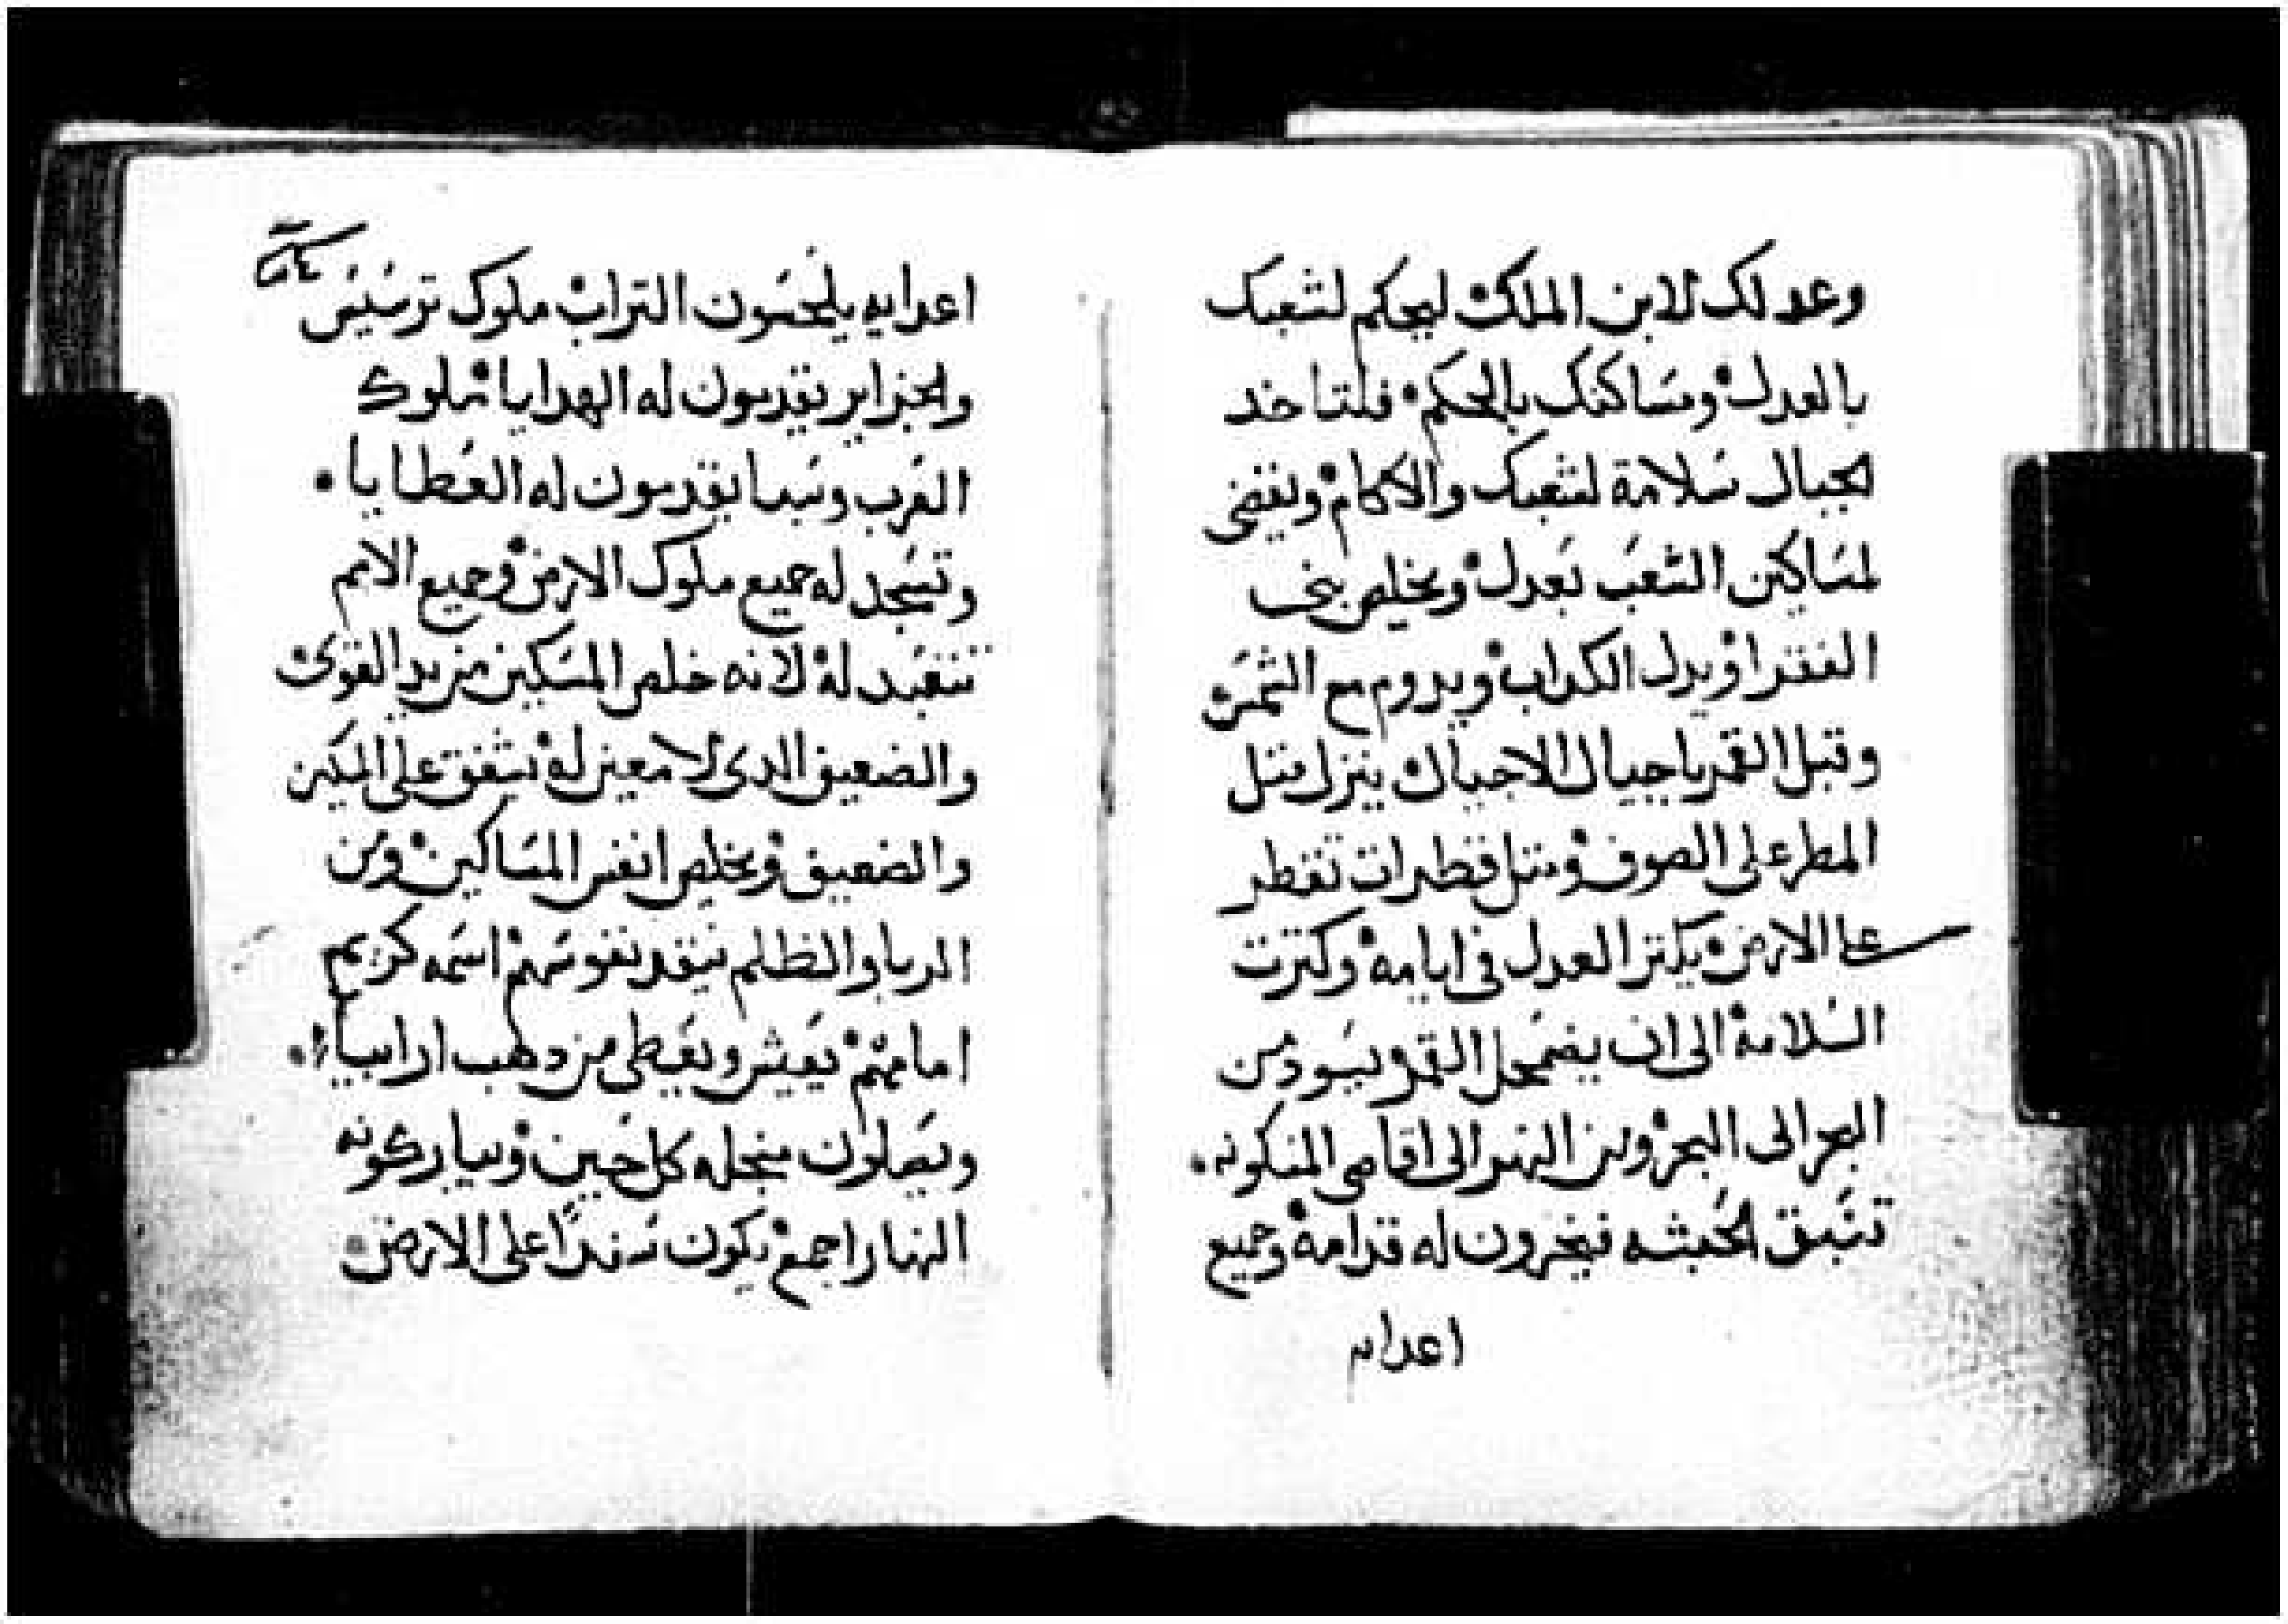 وعدلك لابن الملك ليحكم لشعبك
بالعدل ومساكنك بالحكم فلتاخد
لجبال سلامة لشعبك والاكام ويقضى
لمساكين الشعب بعدل ويخلص بنى
الفقرا ويدل الكداب ويدوم مع الشمس
وقبل القمر ياجيال الاجيال ينزل متل
المطر على الصوف ومتل قطرات تقطر
على الارض يكتر العدل فى ايامه وكترت
السلامه الى ان يضمحل القمر ويسود من
البحر الى البحر ومن النهر الى اقاصى المسكونه
تسبق الحبشه فيخرون له قدامه وجميع
اعدايه
اعدايه يلحسون التراب ملوك ترسيس
والجزاير يقدمون له الهدايا ملوك
العرب وسبا يقدمون له العطايا
وتسجد له جميع ملوك الارض وجميع الامم
تتعبد له لانه خلص المسكين من يد القوى
والضعيف الدى لا معين له يشفق على المسكين
والضعيف ويخلص انفس المساكين ومن
الربا والظلم ينقد نفوسهم اسمه كريم
امامهم يعيش ويعطى من دهب ارابيا
ويصلون منجله كل حين ويباركونه
النهار اجمع يكون سندا على الارض